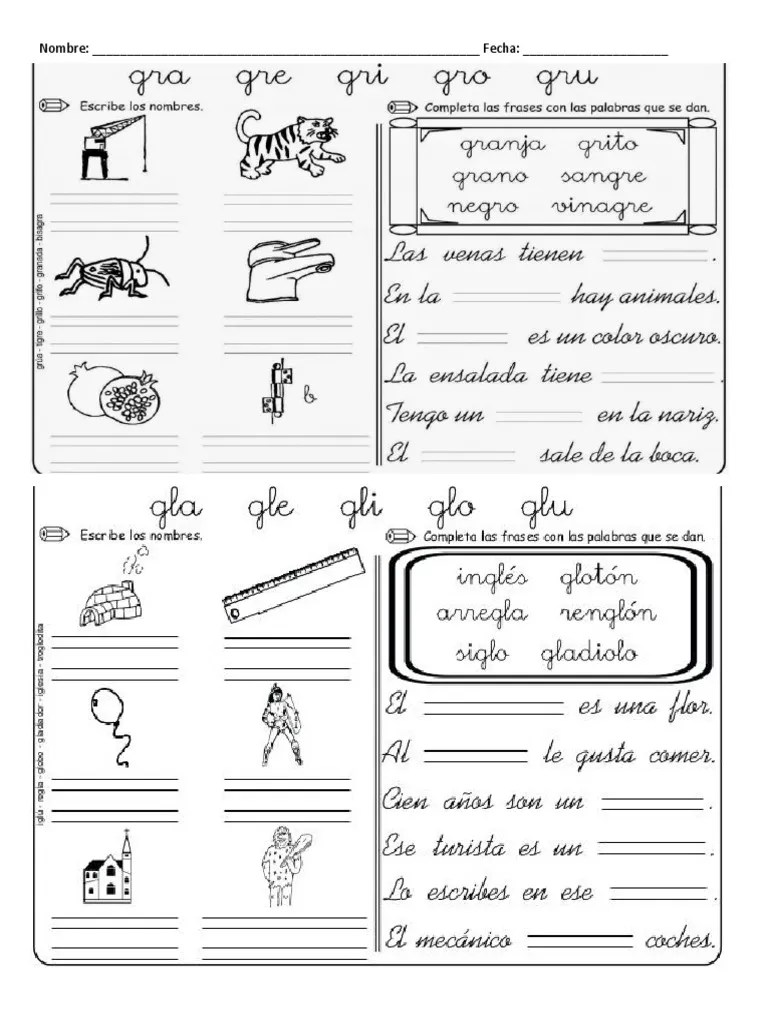 Nombre: ______________________________________________________ Fecha: ____________________
gra gre gri gro gru
Escribe los nombres.
grúa - tigre - grillo - grifo - granada - bisagra
b
Completa las frases con las palabras que se dan.
granja grito
grano sangre
negro vinagre
Las venas tienen ________ .
En la ________ hay animales.
El ________ es un color oscuro.
La ensalada tiene ________ .
Tengo un ________ en la nariz.
El ________ sale de la boca.
gla gle gli glo glu
Escribe los nombres.
iglú - regla - globo - gladiador - iglesia - troglodita
Completa las frases con las palabras que se dan.
inglés glotón
arregla renglón
siglo gladiolo
El ________ es una flor.
Al ________ le gusta comer.
Cien años son un ________ .
Ese turista es un ________ .
Lo escribes en ese ________ .
El mecánico ________ coches.